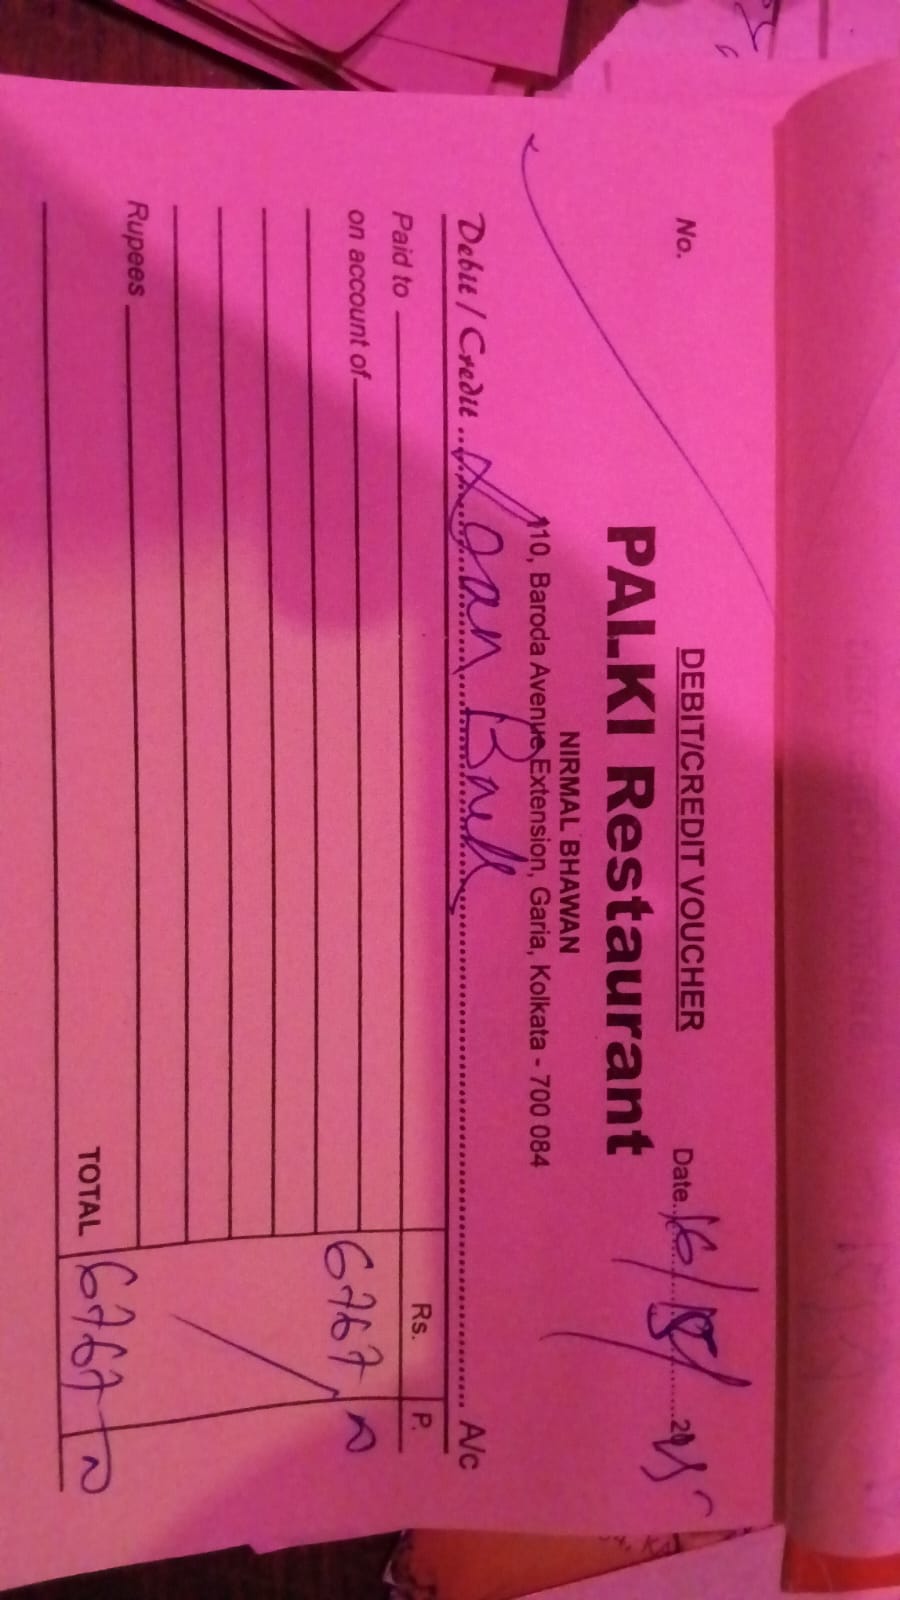 DEBIT/CREDIT VOUCHER
No. Date 16/8/2025
PALKI Restaurant
NIRMAL BHAWAN
110, Baroda Avenue Extension, Garia, Kolkata - 700 084
Debit / Credit Loan A/c
Rs. P.
Paid to
on account of 6767
Rupees
TOTAL 6767